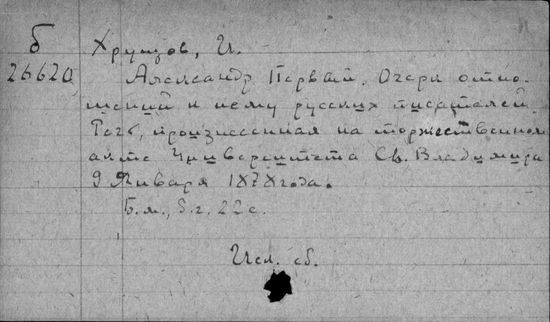 б
26620
Хрущов, И.
Александр Первый. Очерк отно-
шений к нему русских писателей.
Речь, произнесенная на торжественном
акте Университета Св. Владимира
9 Января 1878 года.
Б.м., б.г. 22 с.
Исл. сб.